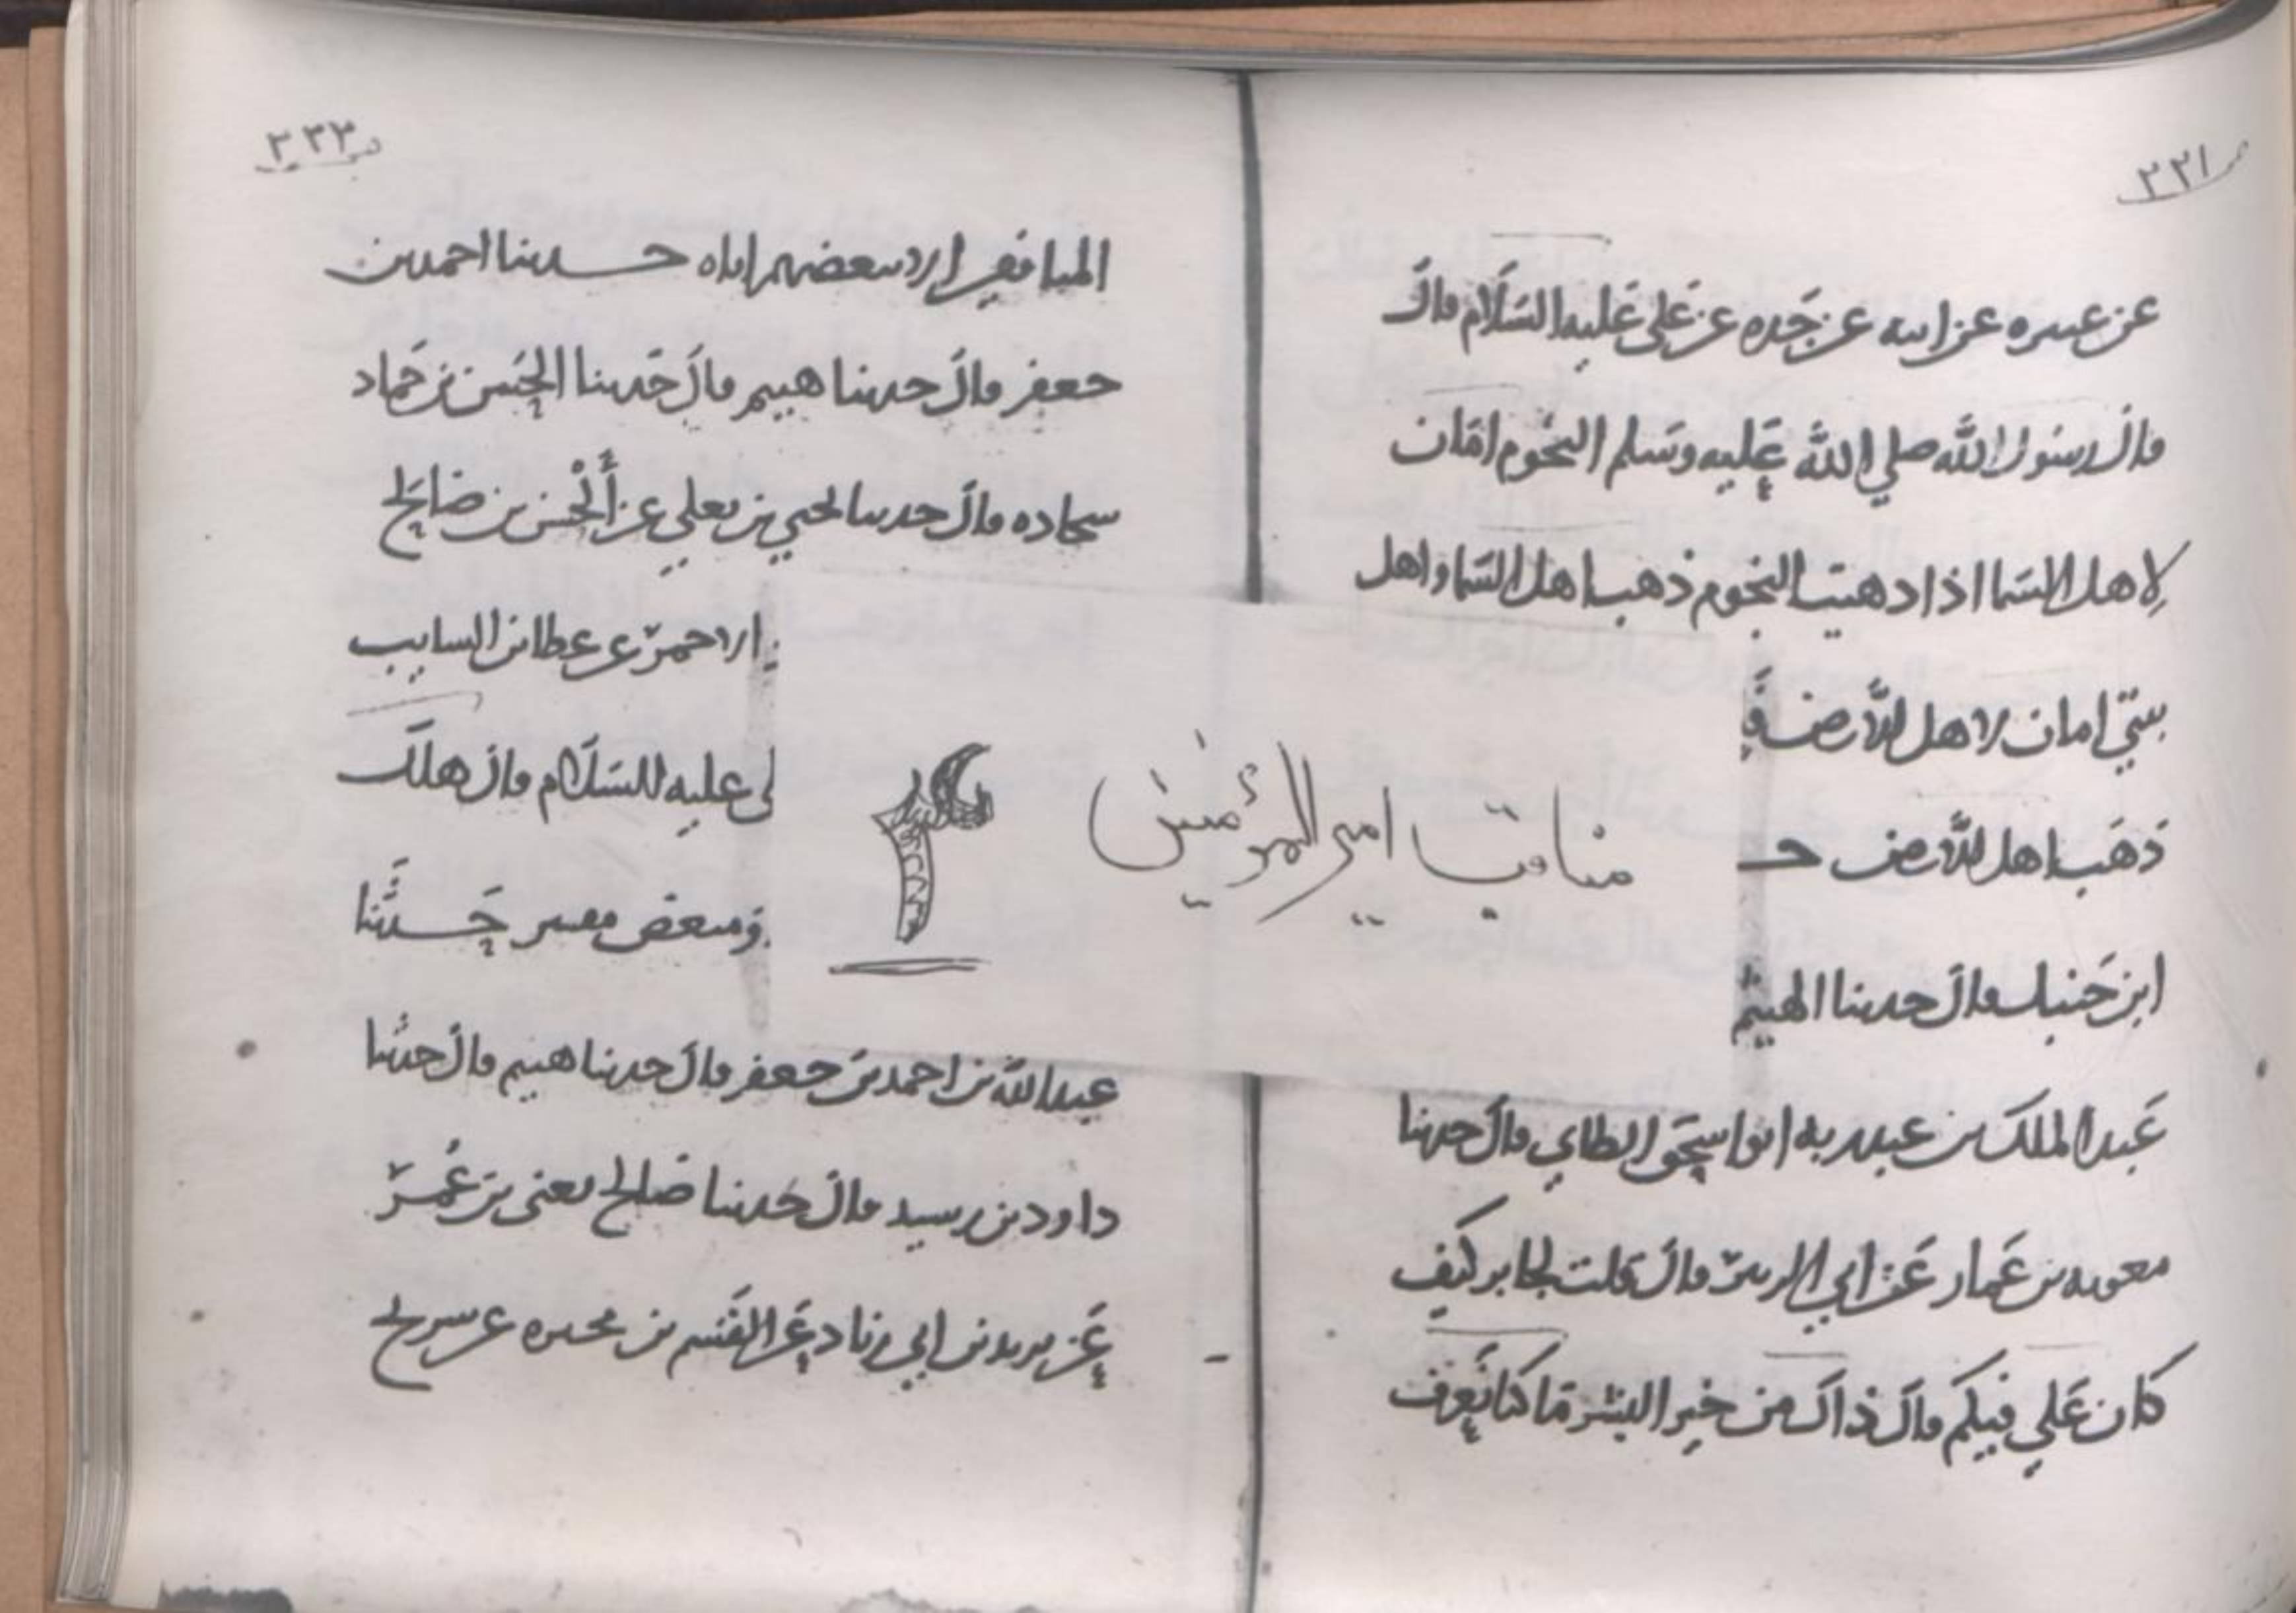 ٢٢١
عن عنتره عن ابيه عن جَده عن عَلى عَليه السَّلَام قال
قال رسول الله صلي الله عَليه وسَلم النجُوم امَان
لاهل السَما اذا ذهبت النجوم ذهب اهل السَما واهل
بيتي امان لاهل الأرض فَ
ذهَب اهل الأرض حـ
ابن حَنبل قال حدثنا الهيثم
عَبد الملك بن عبد ربه ابو اسحَق الطاي قال حدثنا
معويه بن عَمار عَن ابي الزبير قال قلت لجابر كيَف
كان عَلي فيكم قال ذاك من خير البشر مَا كنا نَعرف
٢٢٢
المنافقين الا ببعضهم اياه حـدثنا احمد بن
جعفر قال حدثنا هيثم قال حَدثنا الحَسن بن حَماد
سجاده قال حدثنا يحيي بن يعلي عن أَلْحسن بن صَالح
الاحمر عن عطا بن السايب
لى عليه السَلام قال هلك
ومبغض مفتر حَـدثَنا
عبد الله بن احمد بن جعفر قال حدثنا هيثم قال حدثنا
داود بن رسيد قال حَدثنا صَالح يعنى بن عُمر
عَن يزيد بن ابي زناد عَن القسَم بن عن سريح
مناقب امير المؤمنين
٢